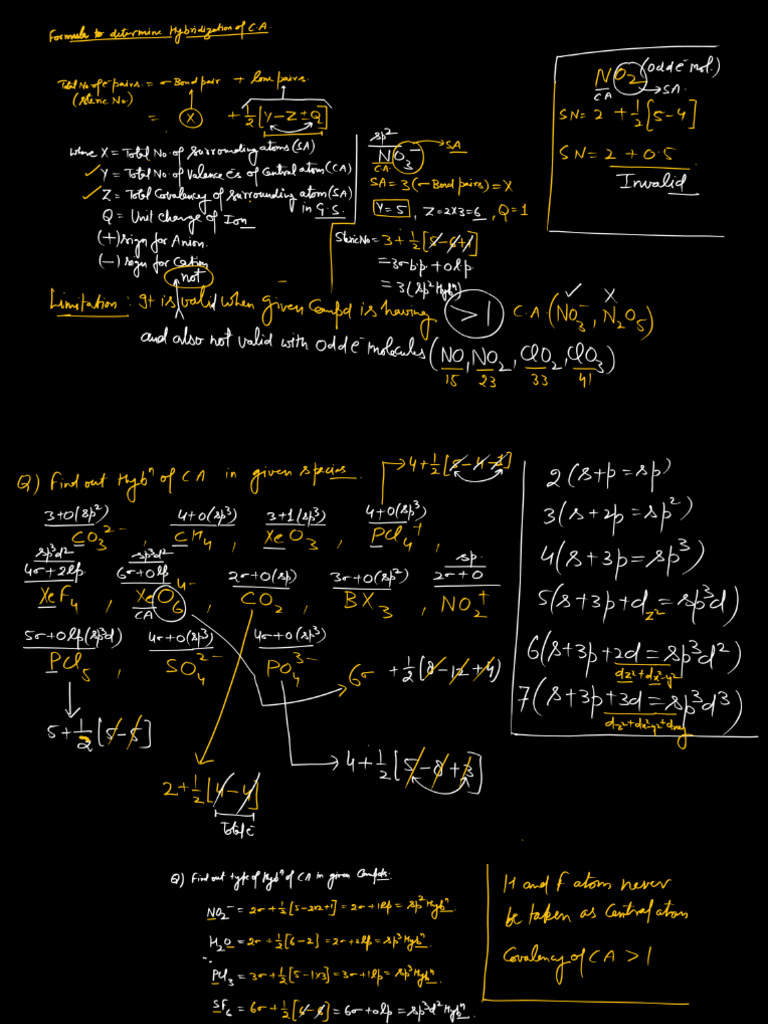 Formula to determine Hybridization of C.A.
Total No of e⁻ pairs = σ Bond pair + lone pairs.
(Steric No.)
= X + 1/2 [Y - Z ± Q]
where X = Total No. of surrounding atoms (SA)
✓ Y = Total No. of Valence e⁻s of Central atom (CA)
✓ Z = Total Covalency of surrounding atom (SA)
in G.S.
Q = Unit charge of Ion
(+) sign for Anion.
(-) sign for Cation
sp²
NO₃⁻ → SA
C.A.
SA = 3 (σ Bond pairs) = X
Y = 5, Z = 2×3 = 6, Q = 1
Steric No = 3 + 1/2 [5 - 6 + 1]
= 3σbp + 0lp
= 3 (sp² Hybⁿ)
NO₂ (odd e⁻ mol.)
CA → SA.
SN = 2 + 1/2 [5 - 4]
SN = 2 + 0.5
Invalid
not
Limitation: It is valid when given Compd is having >1 C.A. (NO₃⁻, N₂O₅)
✓ X
and also not valid with odd e⁻ molecules (NO, NO₂, ClO₂, ClO₃)
15 23 33 41
Q) Find out Hybⁿ of CA in given species.
→ 4 + 1/2 [5 - 4 - 1]
3+0 (sp²) 4+0 (sp³) 3+1 (sp³) 4+0 (sp³)
CO₃²⁻, CH₄, XeO₃, PCl₄⁺
sp³d² sp³d² sp
4σ+2lp 6σ+0lp 2σ+0 (sp) 3σ+0 (sp²) 2σ+0
XeF₄, XeO₆⁴⁻, CO₂, BX₃, NO₂⁺
CA
5σ+0lp (sp³d) 4σ+0 (sp³) 4σ+0 (sp³)
PCl₅, SO₄²⁻, PO₄³⁻
6σ + 1/2 [8 - 12 + 4]
5 + 1/2 [5 - 5]
4 + 1/2 [5 - 8 + 3]
2 + 1/2 [4 - 4]
Total e⁻
2 (s+p = sp)
3 (s+2p = sp²)
4 (s+3p = sp³)
5 (s+3p+d z² = sp³d)
6 (s+3p+2d = sp³d²)
dz²+dx²-y²
7 (s+3p+3d = sp³d³)
dz²+dx²-y²+dxy
Q) Find out type of Hybⁿ of CA in given Compds.
NO₂⁻ = 2σ + 1/2 [5 - 2×2 + 1] = 2σ + 1lp = sp² Hybⁿ.
H₂O = 2σ + 1/2 [6 - 2] = 2σ + 2lp = sp³ Hybⁿ.
PCl₃ = 3σ + 1/2 [5 - 1×3] = 3σ + 1lp = sp³ Hybⁿ.
SF₆ = 6σ + 1/2 [6 - 6] = 6σ + 0lp = sp³d² Hybⁿ.
H and F atom never
be taken as Central atom
Covalency of CA > 1